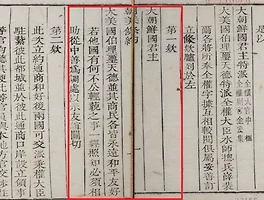 是以
大朝鮮國君主特派
大美國伯理璽天德特派全權大臣水師總兵薛裴
爾各將所奉全權字據互相較閱俱屬妥善訂
立條欵臚列於左
第一欵
大朝鮮國君主
大美國伯理璽天德並其商民各皆永遠和平友好
若他國有何不公輕藐之事一經照知必須相
助從中善爲調處以示友誼關切
第二欵
此次立約通商和好後兩國可交派秉權大臣
駐紮彼此都城並於彼此通商口岸設立領事